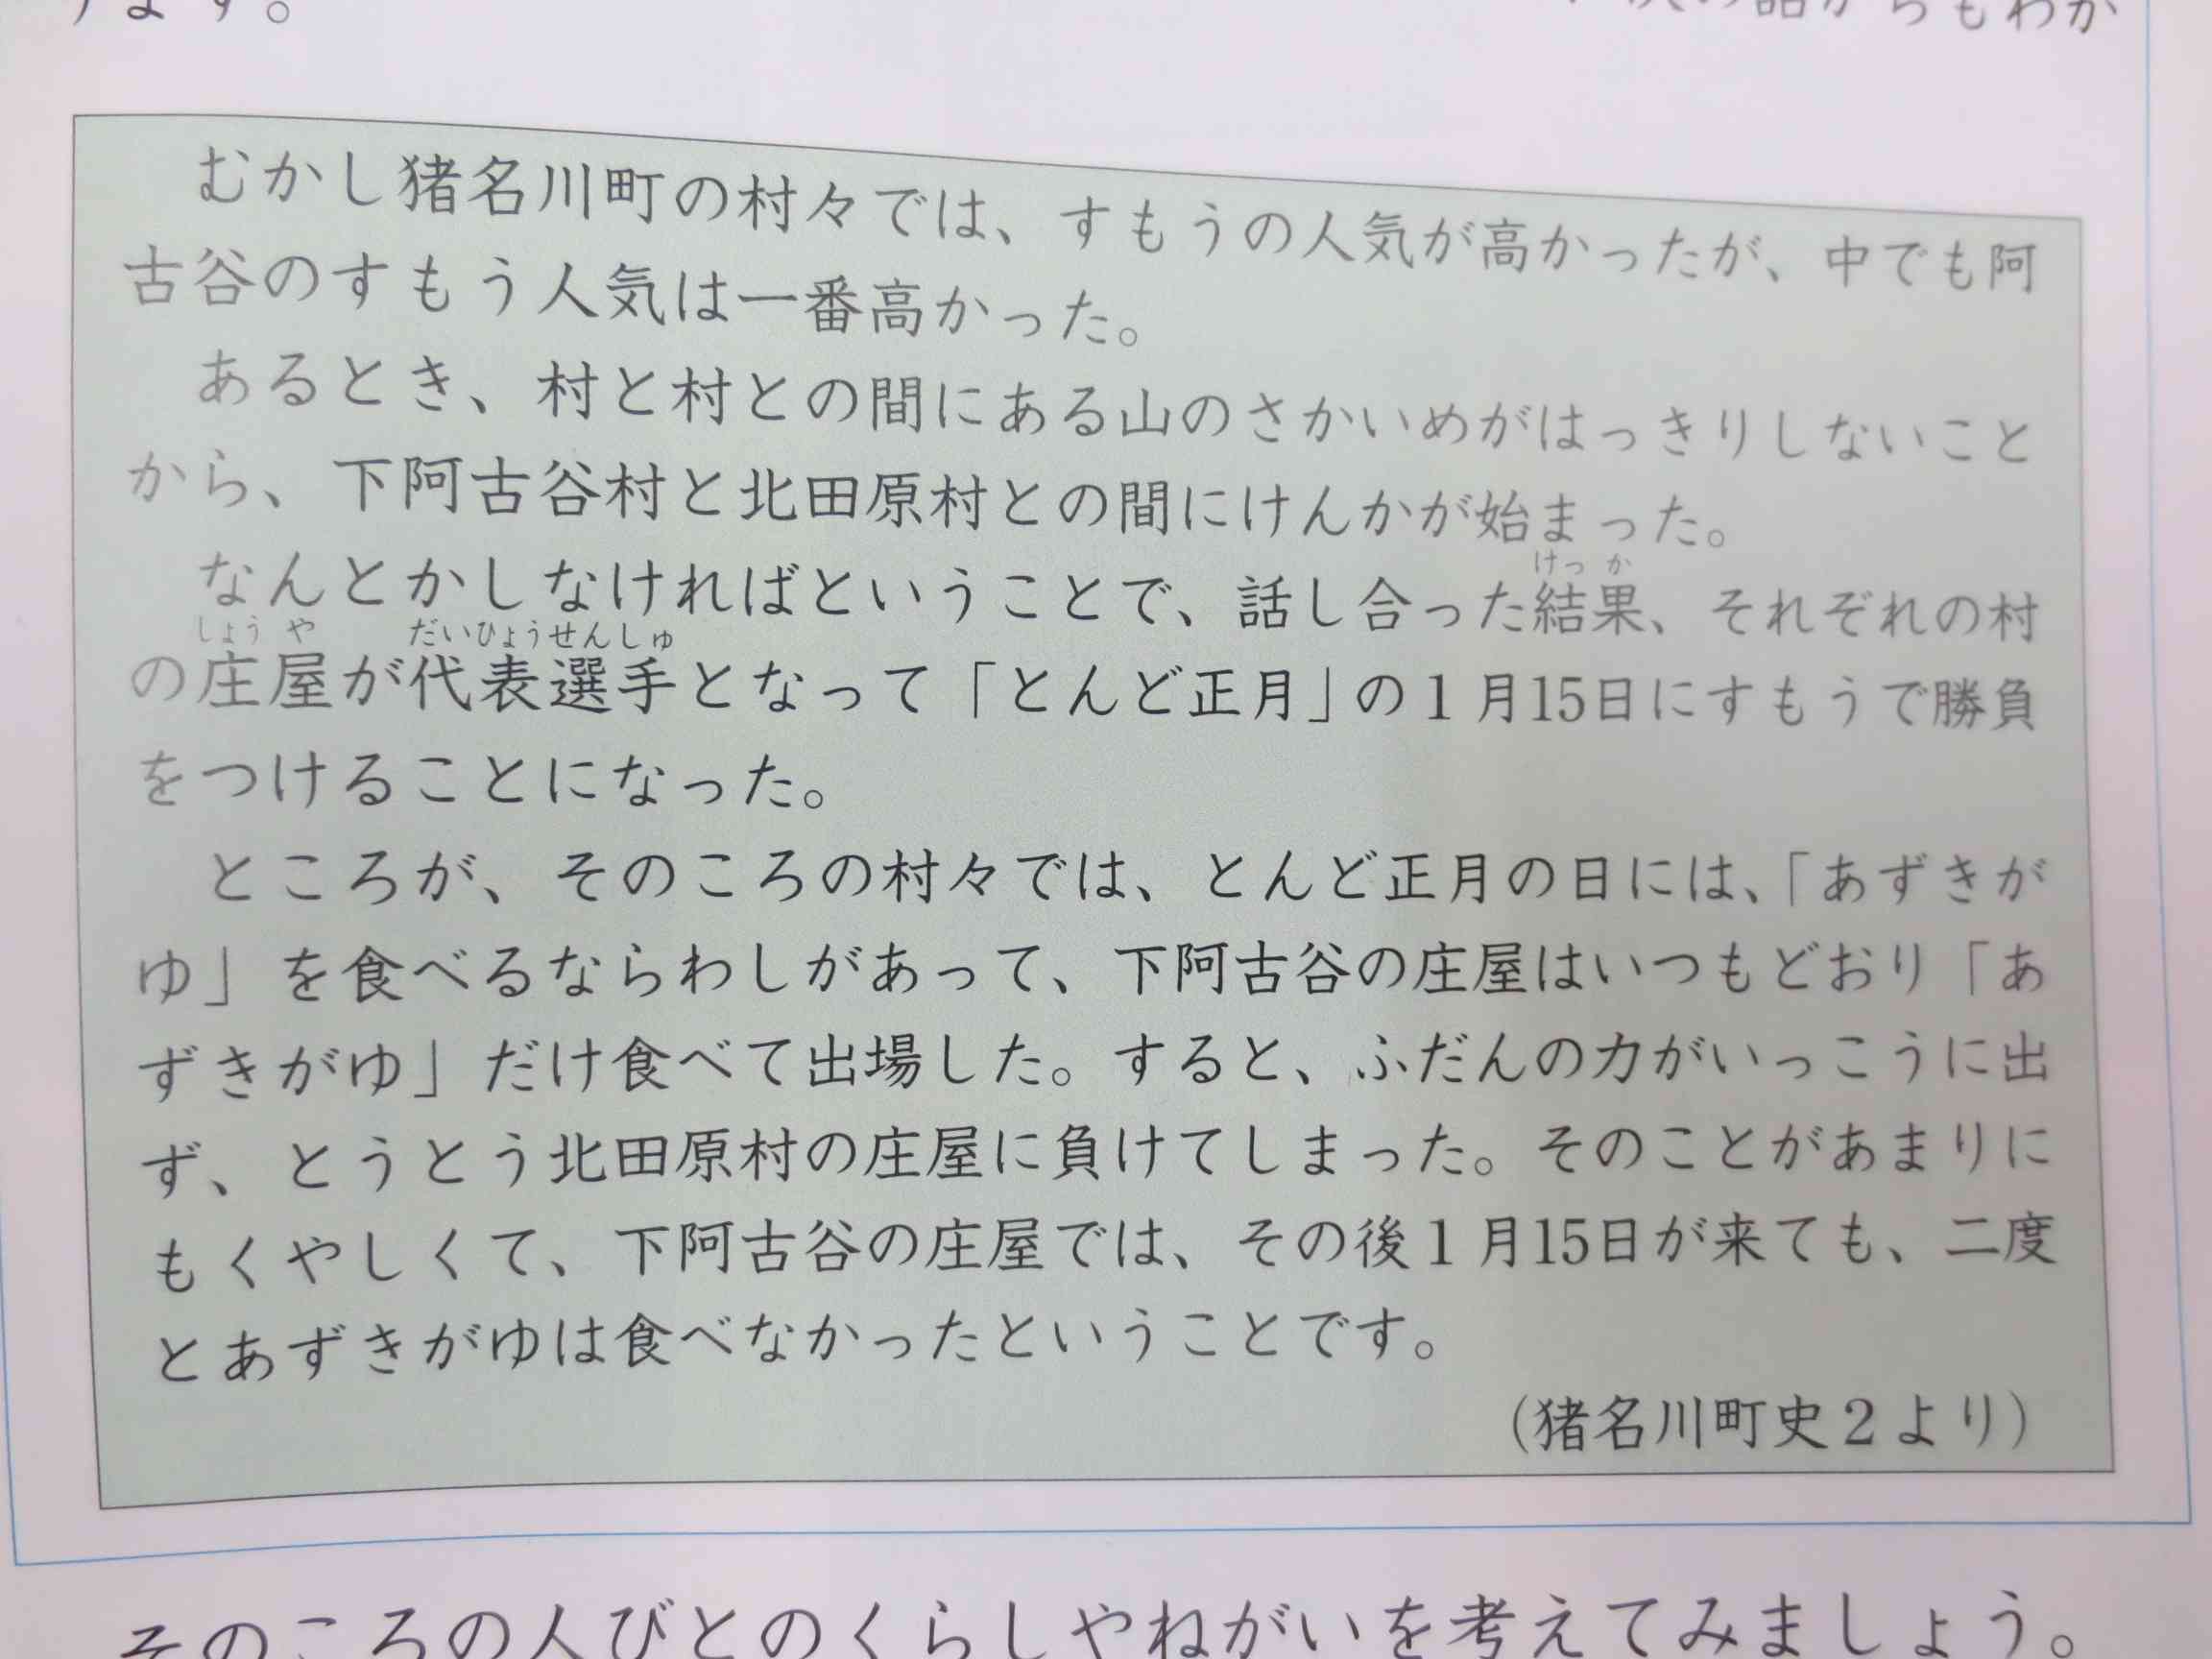 ます。
次の話からもわか
むかし猪名川町の村々では、すもうの人気が高かったが、中でも阿
古谷のすもう人気は一番高かった。
あるとき、村と村との間にある山のさかいめがはっきりしないこと
から、下阿古谷村と北田原村との間にけんかが始まった。
なんとかしなければということで、話し合った結果、それぞれの村
の庄屋が代表選手となって「とんど正月」の1月15日にすもうで勝負
をつけることになった。
ところが、そのころの村々では、とんど正月の日には、「あずきが
ゆ」を食べるならわしがあって、下阿古谷の庄屋はいつもどおり「あ
ずきがゆ」だけ食べて出場した。すると、ふだんの力がいっこうに出
ず、とうとう北田原村の庄屋に負けてしまった。そのことがあまりに
もくやしくて、下阿古谷の庄屋では、その後1月15日が来ても、二度
とあずきがゆは食べなかったということです。
(猪名川町史2より)
そのころの人びとのくらしやねがいを考えてみましょう。